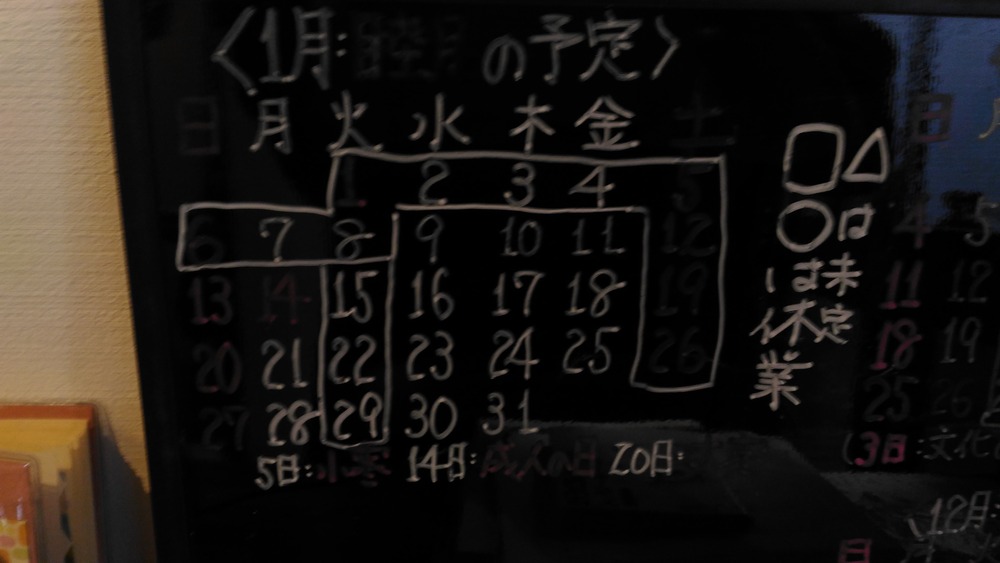 〈1月:睦月の予定〉
日 月 火 水 木 金 土
1 2 3 4 5
6 7 8 9 10 11 12
13 14 15 16 17 18 19
20 21 22 23 24 25 26
27 28 29 30 31
5日:小寒 14日:成人の日 20日:
□△は未定
○は休業
日 月
4 5
11 12
18 19
25 26
(3日:文化
12月:
日